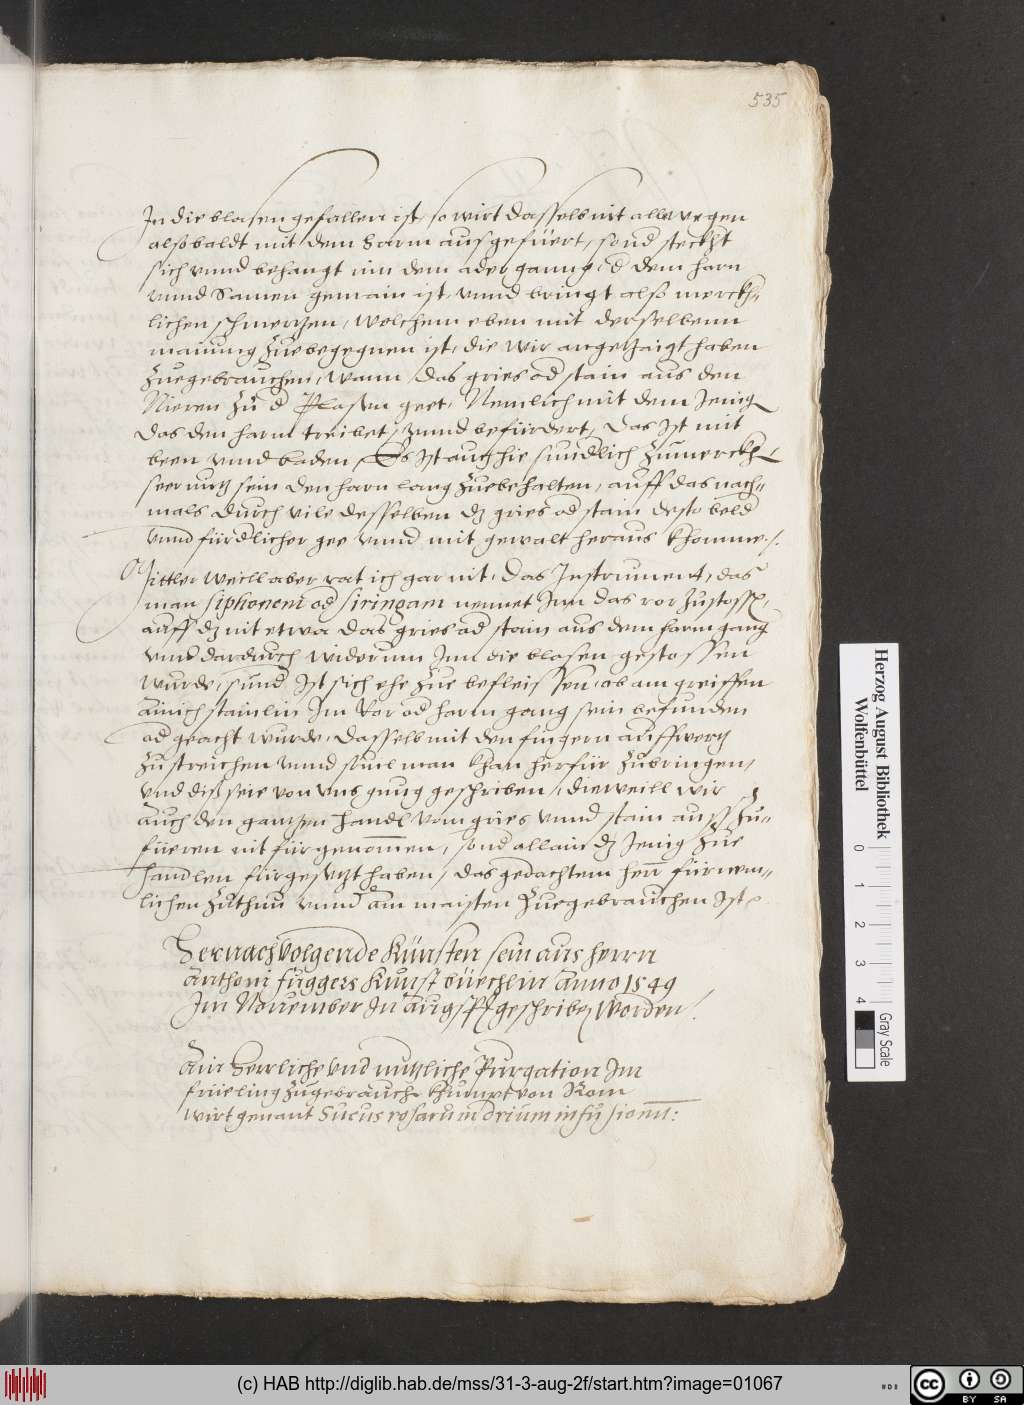 535
In die blasen gefallen ist, so wirt dasselb nit allwegen
alsobaldt mit dem harm ausgefüert, sond steckht
sich vnnd behangt inn dem ader ganng, d dem harn
vnnd Samen gemain ist, vnnd bringt also merckh-
lichen schmertzen, wolchem eben mit derselbenn
mainung zuebegegnen ist, die wir angezaigt haben
zuegebrauchen, wann das gries od stain aus den
Nieren zů d Plasen geet, Nemlich mit dem Jenig
das den harm treibet, vnnd befürdert, das ist mit
been vnnd baden, Es ist auch hie sundlich zumerckh
seer nutz sein den harn lang zuebehalten, auff das nach-
mals durch vile desselben dz gries od stain desto beld
vnnd fürdlicher gee vnnd mit gewalt heraus khomme ./.
Mittler weill aber rat ich gar nit, das Instrument, das
man siphonem od siringam nennet Inn das ror zustossen,
auff dz nit etwa das gries od stain aus dem harm gang
vnnd dardurch widerumb Inn die blasen gestossen
wurde, sund Ist sich ehe zue befleissen, ob am greiffen
ainich stainlin Im Ror od harm gang sein befunden
od geacht wurde, dasselb mit den fingern auffwertz
zustreichen vnnd souil man khan herfür zůbringen,
vnd diß seie von vns gnug geschriben, dieweill wir
auch den gantzen handl vom gries vnnd stain ausszu-
füeren nit fürgenommen, sond allain dz Jenig zue
handlen fürgesetzt haben, das gedachtem herr fürnem-
lichen zůthun vnnd am maisten zuegebrauchen Ist
Hernachuolgende Künsten sein aus herrn
Anthoni fuggers Kunst büechlin Anno 1549
Im Nouember In Augspurg geschriben worden
Ain herrliche vnd nutzliche Purgation Im
früeling zugebrauch khumpt von Rom
wirt genant Sucus rosarum
Herzog August Bibliothek
Wolfenbüttel
0 1 2 3 4
Gray Scale
(c) HAB http://diglib.hab.de/mss/31-3-aug-2f/start.htm?image=01067
cc BY SA